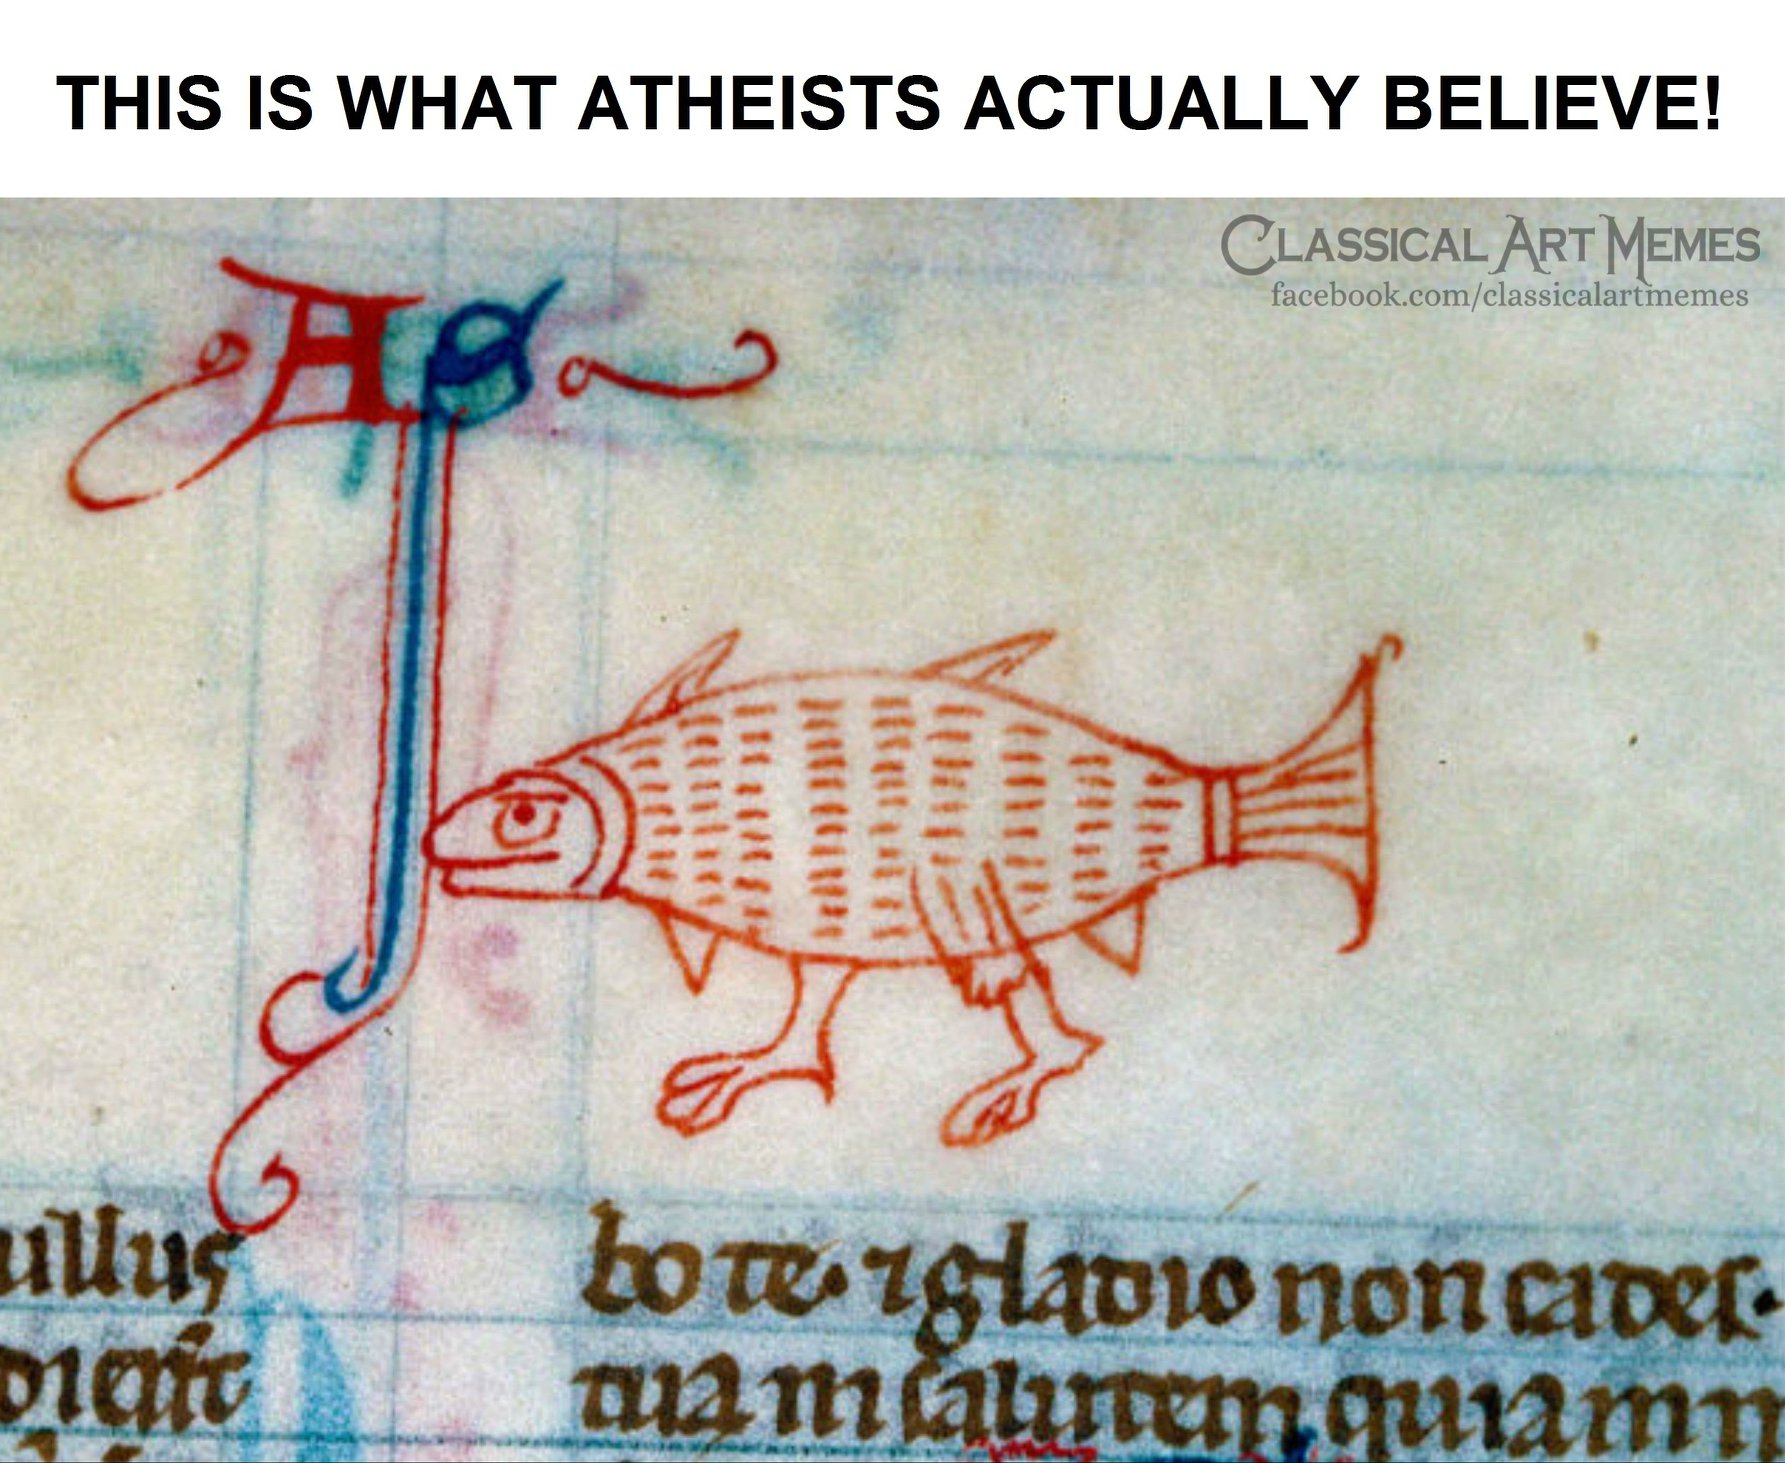 THIS IS WHAT ATHEISTS ACTUALLY BELIEVE!
CLASSICAL ART MEMES
facebook.com/classicalartmemes
ullus
bo te· ⁊ gladio non cadeſ·
tua in ſalutem quia in